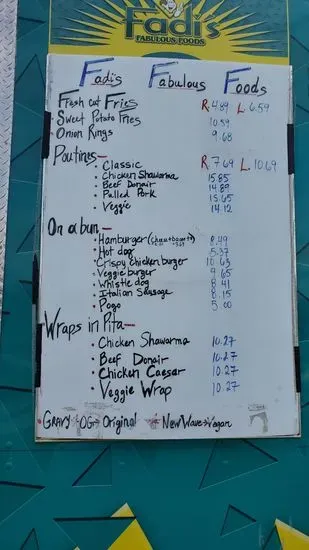 Fadi's
FABULOUS FOODS
Fadi's Fabulous Foods
Fresh Cut Fries R 4.89 L 6.59
Sweet Potato Fries 10.59
Onion Rings 9.68
Poutines-
• Classic R 7.69 L 10.69
• Chicken Shawarma 15.85
• Beef Donair 14.89
• Pulled Pork 15.65
• Veggie 14.12
On a bun-
• Hamburger 8.49
• Hot dog 5.37
• Crispy Chicken burger 10.63
• Veggie burger 9.65
• Whistle dog 8.41
• Italian Sausage 8.15
• Pogo 5.00
Wraps in Pita-
• Chicken Shawarma 10.27
• Beef Donair 10.27
• Chicken Caesar 10.27
• Veggie Wrap 10.27
• GRAVY OG→Original New Wave→Vegan